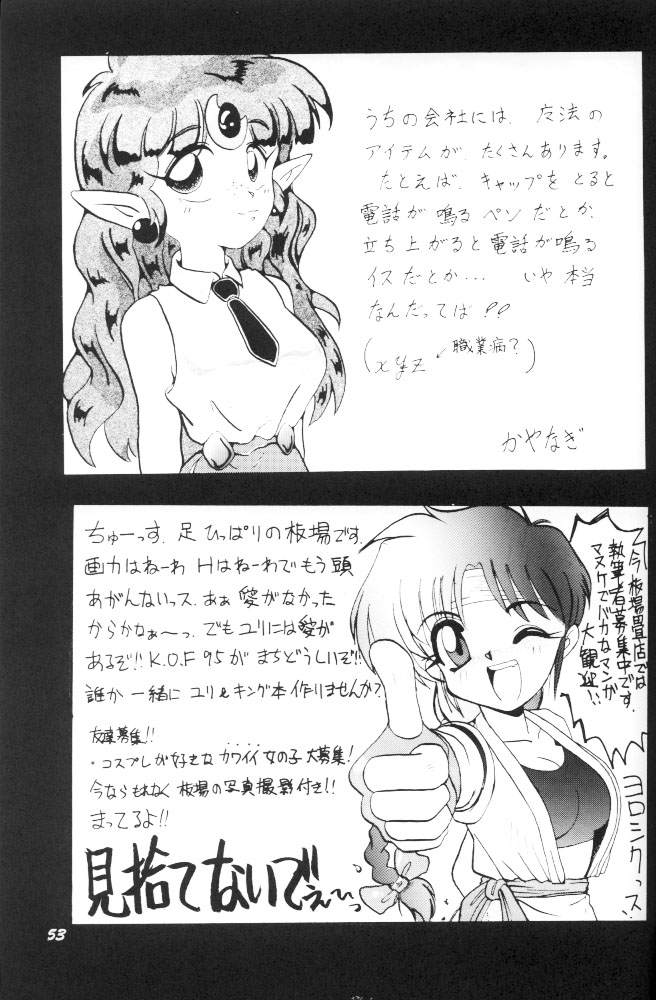 うちの会社には、魔法の
アイテムが、たくさんあります。
たとえば、キャップをとると
電話が鳴るペンだとか、
立ち上がると電話が鳴る
イスだとか… いや本当
なんだってば!!
(xyz ↙職業病?)
かやなぎ
ちゅーっす、足ひっぱりの板場です。
画力はねーわ Hはねーわでもう頭
あがんないっス。あぁ愛がなかった
からかなぁ〜っ。でもユリには愛が
あるぞ!! K.O.F 95が まちどうしいぞ!!
誰か一緒に ユリ&キング本作りませんか?
友達募集!!
・コスプレが好きなカワイイ女の子大募集!
今ならもれなく 板場の写真撮影付き!!
まってるよ!!
見捨てないでぇ〜っ
今、板場畳店では
執筆者募集中です。
マヌケでバカなマンガ
大歓迎!!
ヨロシクっス!
53